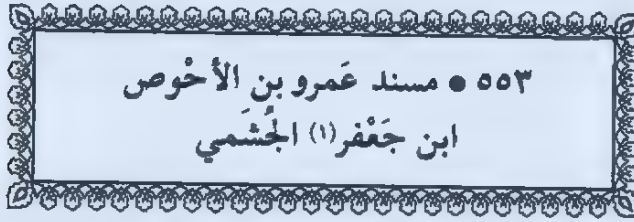 ٥٥٣ ● مسند عَمرو بن الأحْوص
ابن جَعْفر(١) الجُشَمي